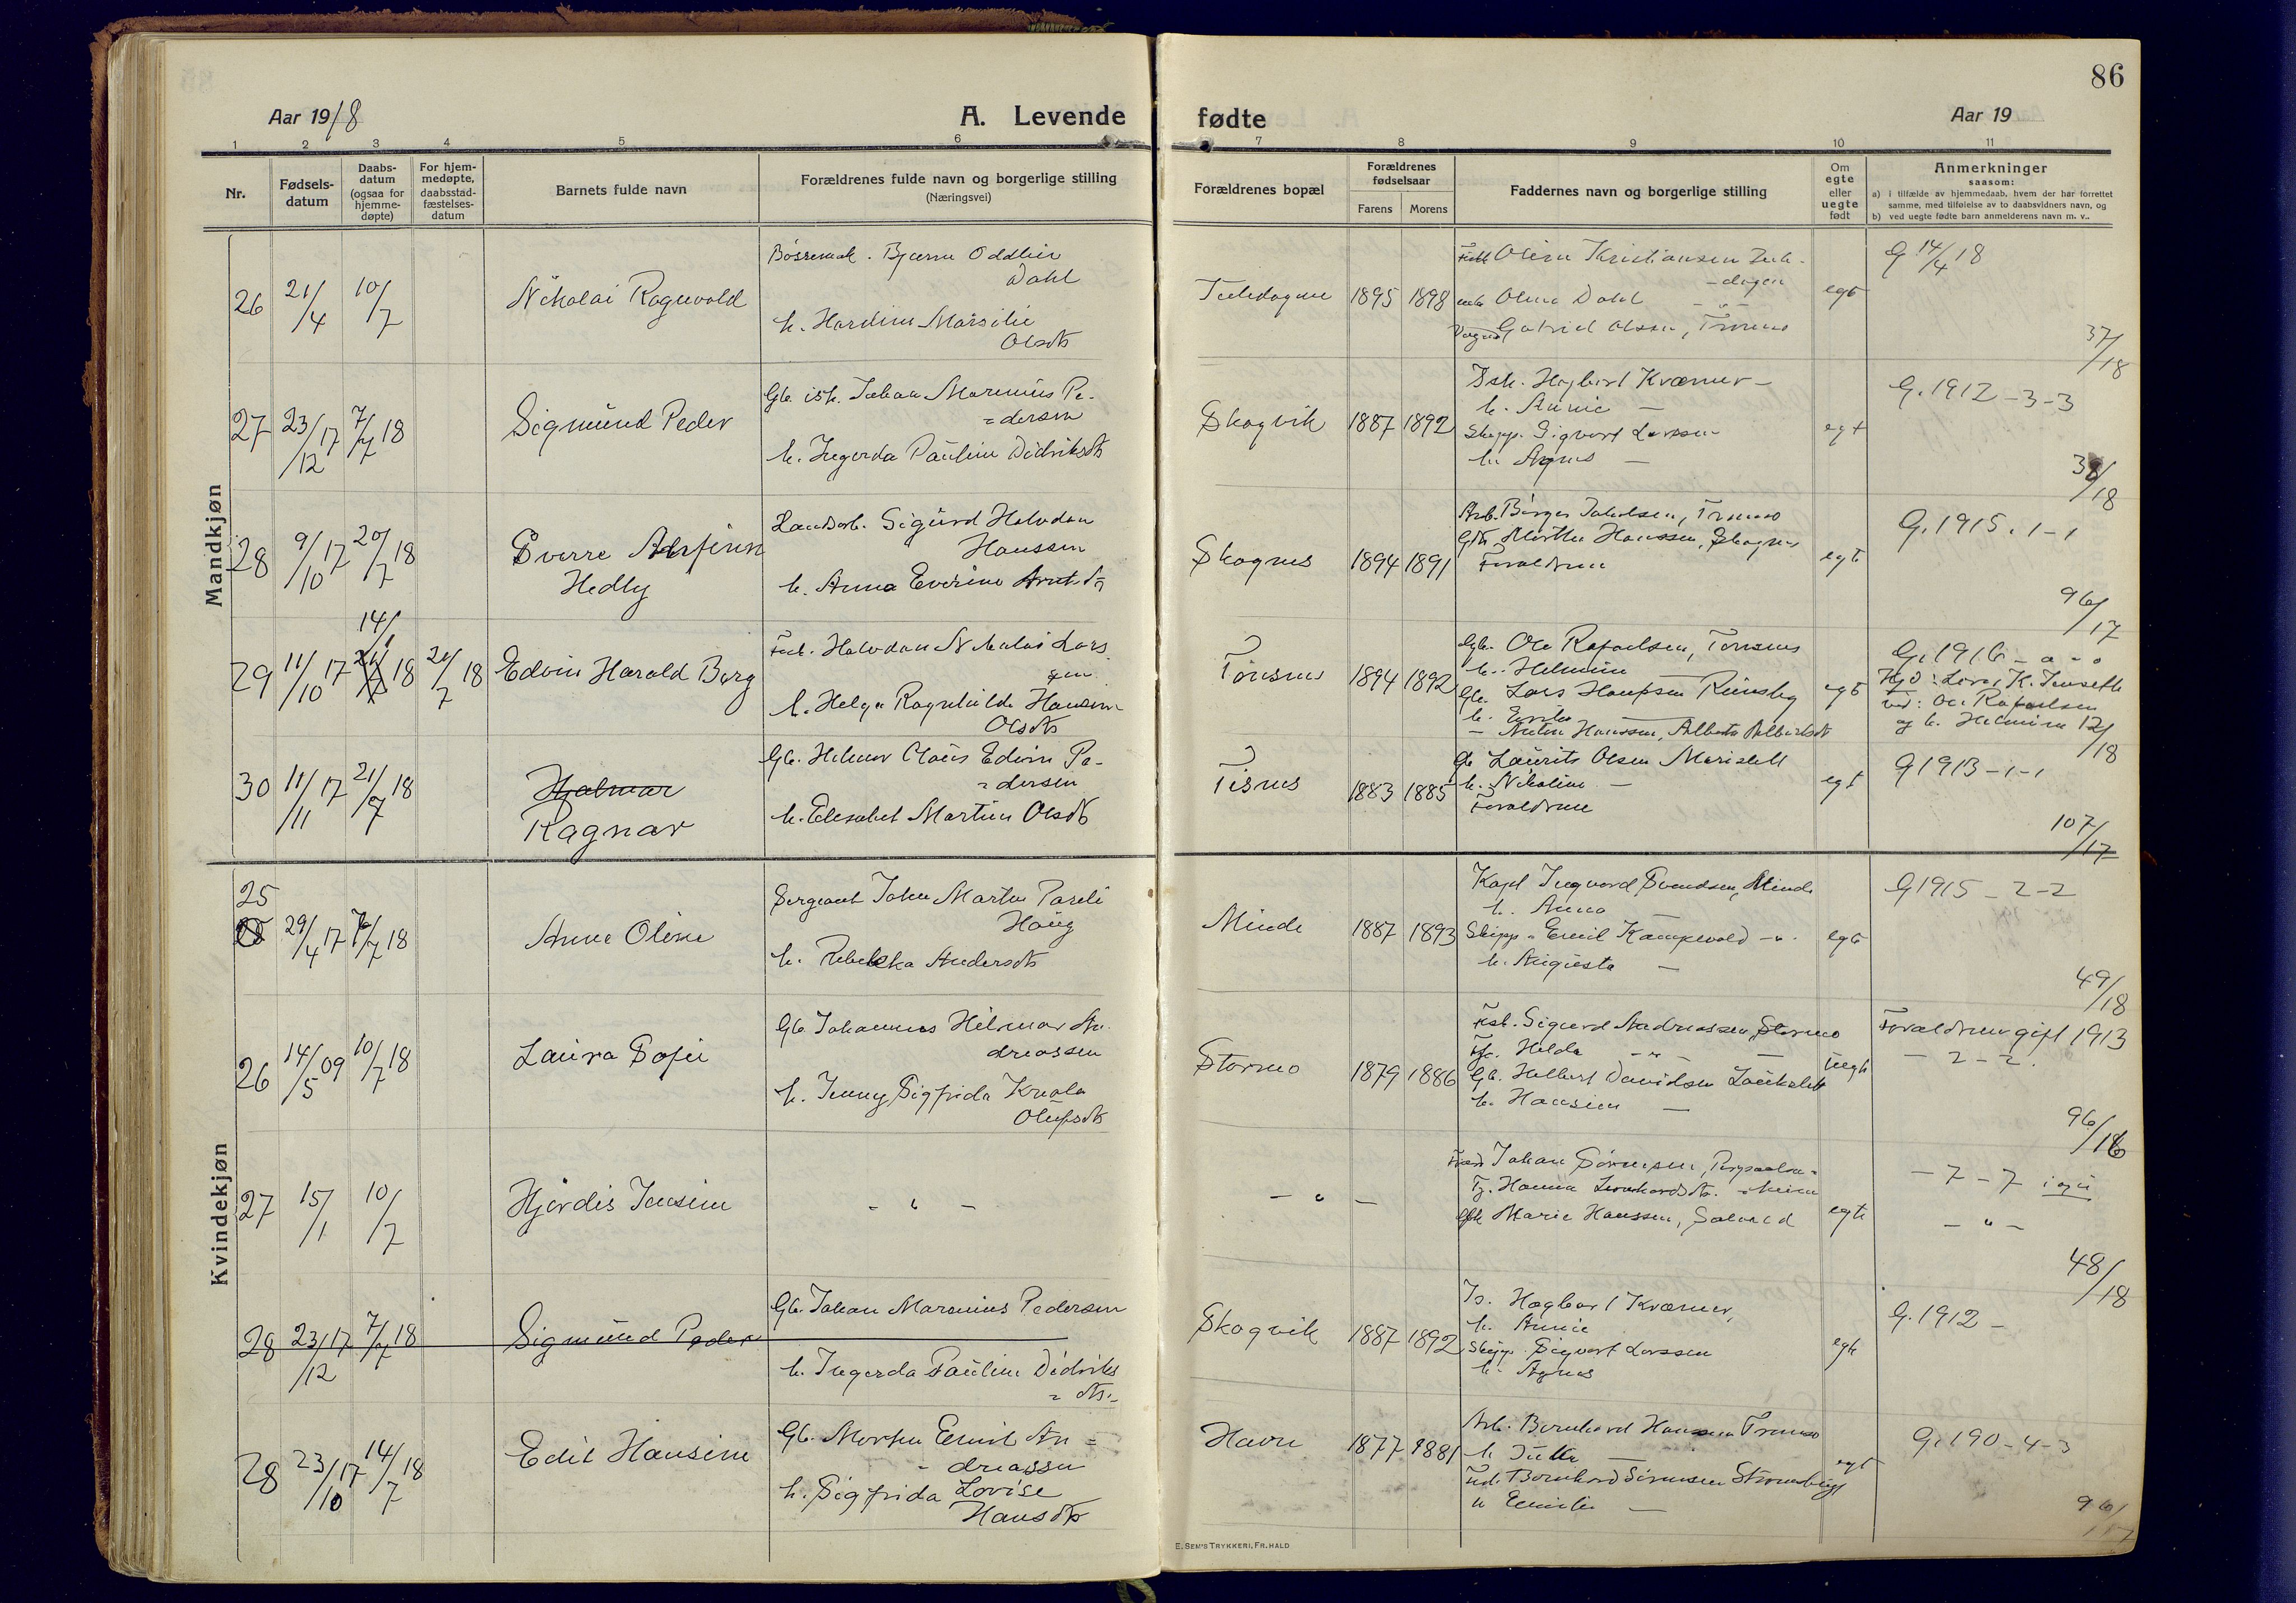 86
Aar 1918
A. Levende
fødte
Aar 19
1 2 3 4 5 6 7 8 9 10 11
Nr.
Fødsels-
datum
Daabs-
datum
(ogsaa for
hjemme-
døpte)
For hjem-
medøpte,
daabsstad-
fæstelses-
datum
Barnets fulde navn
Forældrenes fulde navn og borgerlige stilling
(Næringsvei)
Forældrenes bopæl
Forældrenes
fødselsaar
Farens Morens
Faddernes navn og borgerlige stilling
Om
egte
eller
uegte
født
Anmerkninger
saasom:
a) i tilfælde av hjemmedaab, hvem der har forrettet
samme, med tilføielse av to daabsvidners navn, og
b) ved uegte fødte barn anmelderens navn m. v..
Mandkjøn
26 21/4 10/7 Nikolai Ragnvold
Bjarne Oddleiv
Dahl
h. Hardine Marsilie
Olsdtr
1895 1898
Olsen Kristiansen
Olina Dahl
Gabriel Olsen, Tromsø
egt
G 14/4 18
37/18
27 23/12 17 7/7 18 Sigmund Peder
Gb. isk. Johan Marenius Pe-
=dersen
h. Ingerda Pauline Didriksdtr
Skogvik 1887 1892
Isk. Hagbart Kræmer -
h. Annie -
Skipp. Sigvart Larssen
h. Agnes -
egt
G. 1912 - 3 - 3
38/18
28 9/10 17 20/7 18 Sverre Arfinn
Hedly
Sigurd Halvdan
Hanssen
h. Anna Everine Arntsdtr
Skognes 1894 1891
Arb. Birger Jakobsen, Tromsø
Gdtr. Marthe Hanssen, Skognes
Forældrene
egt
G. 1915. 1 - 1
96/17
29 11/10 17 14/1 18 21/7 18 Edvin Harald Berg
Halvdan Nikolai Lars
sen
h. Helga Ragnhilde Hansine
Olsdtr
Tønsnes 1894 1892
Gb. Ole Rafaelsen, Tønsnes
h. Helmine -
Gb. Lars Hansen Reinsby
h. Emilie -
- Hanssen, Alberte Albertsdtr
egt
G. 1916 - 0 - 0
Hjd: K. Jensette
ved: Ole Rafaelsen
og h. Helmine 12/18
30 11/11 17 21/7 18 Hjalmar
Ragnar
Gb. Hilmar Claus Edvin Pe-
=dersen
h. Elesabet Martine Olsdtr
Tisnes 1883 1885
Gb Laurits Olsen
h. Nikoline -
Forældrene
egt
G 1913 - 1 - 1
107/17
Kvindekjøn
25
29/4 17 7/7 18 Anne Oline
Sergeant Johan Martin Pareli
Haug
h. Rebekka Andersdtr
Minde 1887 1893
Kapt Ingvard Svendsen, Minde
h. Anna -
Skipp. Emil Kampevold - " -
h. Augusta -
egt
G 1915 - 2 - 2
49/18
26 14/5 09 10/7 18 Laura Sofie
Gb. Johannes Hilmar An-
dreassen
h. Jenny Sigfrida
Olufsdtr
Stormo 1879 1886
Fisk. Sigurd Andreassen, Stormo
Hilda - " -
Gb. Halbert Davidsen
h. Hansine -
uegte
Forældrene gift 1913
- 2 - 2.
96/16
27 15/1 10/7 Hjørdis Jensine
- " -
- " -
Johan Sørensen,
Tj. Hanna Leonhardsdtr.
Marie Hanssen,
egte
- 7 - 7
- " -
48/18
28 23/12 17 7/7 18 Sigmund Peder
Gb. Johan Marenius Pedersen
h. Ingerda Pauline Didriks
=dtr.
Skogvik 1887 1892
Is. Hagbart Kræmer,
h. Annie
Skipp. Sigvart Larssen
h. Agnes
egte
G. 1912 -
28 23/10 17 14/7 18 Edit Hansine
Gb. Morten Emil An-
dreassen
h. Sigfrida Lovise
Hansdtr
Havn 1877 1881
Arb. Bernhard Hanssen Tromsø
h.
Bernhard Sørensen
h Emilie -
egt
G. 190 - 4 - 3
96/17
E. SEM'S TRYKKERI, FR.HALD